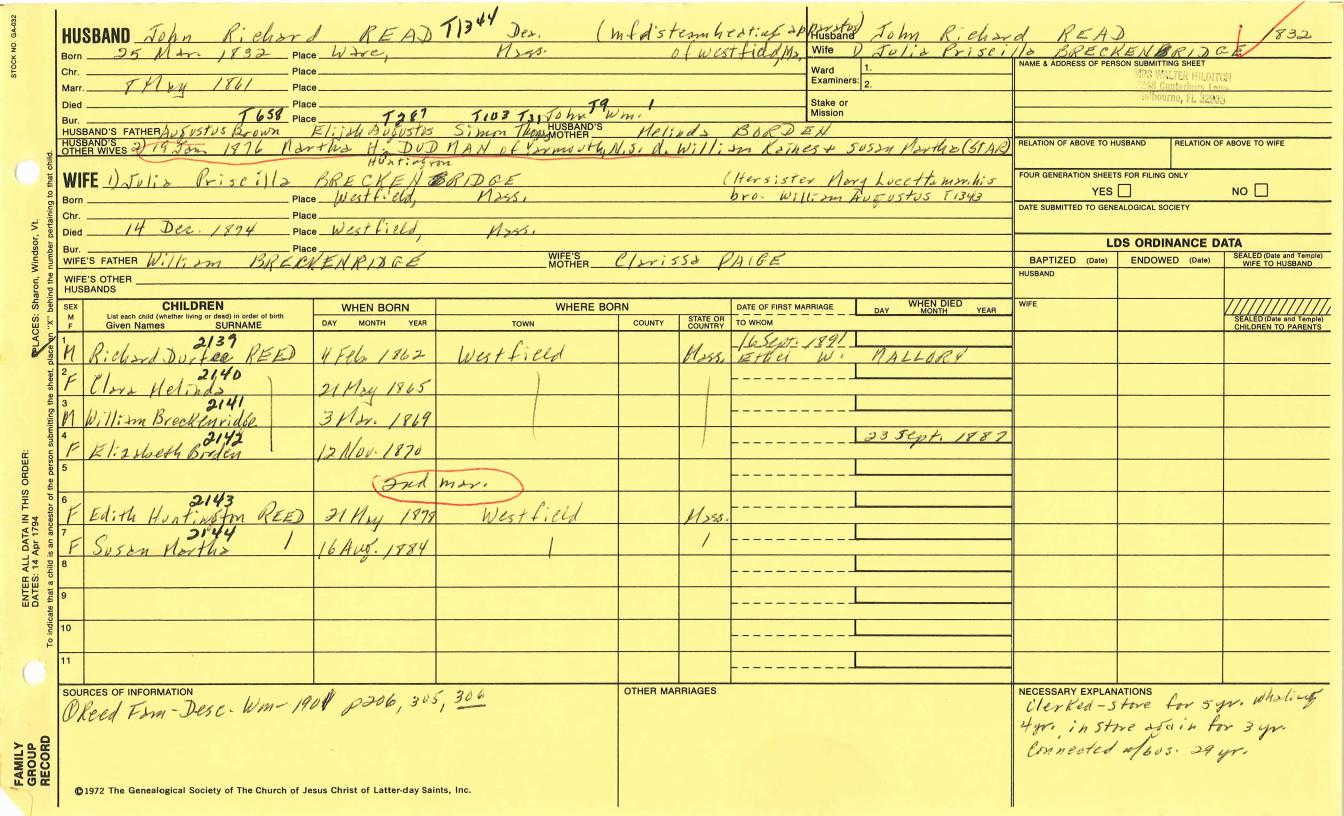 STOCK NO. GA-032
HUSBAND John Richard READ T1344 Dea. (mfd steam heating apparatus)
Born 25 Mar. 1832 Place Ware, Mass. of Westfield, Ms.
Chr. Place
Marr. 8 May 1861 Place
Died Place
Bur. Place
T658 T287 T103 T21 T9 1
HUSBAND'S FATHER Augustus Brown Elijah Augustus Simon Thos John Wm. HUSBAND'S MOTHER Melinda BORDEN
HUSBAND'S OTHER WIVES 2) 19 Jan 1876 Martha H. DUDMAN of Yarmouth, N.S. d. William Raines + Susan Martha (STAR)
Huntington
WIFE 1) Julia Priscilla BRECKENBRIDGE (Her sister Mary Lucetta mar. his
Born Place Westfield, Mass. bro. William Augustus T1343
Chr. Place
Died 14 Dec. 1874 Place Westfield, Mass.
Bur. Place
WIFE'S FATHER William BRECKENRIDGE WIFE'S MOTHER Clarissa PAIGE
WIFE'S OTHER HUSBANDS
Husband John Richard READ 1832
Wife 1) Julia Priscilla BRECKENBRIDGE
Ward Examiners: 1.
2.
Stake or Mission
NAME & ADDRESS OF PERSON SUBMITTING SHEET
MRS WALTER HILDITCH
Canterbury Lane
Melbourne, FL 32935
RELATION OF ABOVE TO HUSBAND RELATION OF ABOVE TO WIFE
FOUR GENERATION SHEETS FOR FILING ONLY
YES NO
DATE SUBMITTED TO GENEALOGICAL SOCIETY
LDS ORDINANCE DATA
BAPTIZED (Date) ENDOWED (Date) SEALED (Date and Temple) WIFE TO HUSBAND
HUSBAND
WIFE
SEALED (Date and Temple) CHILDREN TO PARENTS
SEX M F
CHILDREN
List each child (whether living or dead) in order of birth
Given Names SURNAME
WHEN BORN
DAY MONTH YEAR
WHERE BORN
TOWN COUNTY STATE OR COUNTRY
DATE OF FIRST MARRIAGE
TO WHOM
WHEN DIED
DAY MONTH YEAR
1 2139 16 Sept. 1891
M Richard Durfee REED 4 Feb. 1862 Westfield Mass. Ethel W. MALLORY
2 2140
F Clara Melinda 21 May 1865
3 2141
M William Breckenridge 3 Mar. 1869
4 2142 23 Sept. 1887
F Elizabeth Borden 12 Nov. 1870
5
2nd mar.
6 2143
F Edith Huntington REED 21 May 1878 Westfield Mass.
7 2144
F Susan Martha 16 Aug. 1884
8
9
10
11
SOURCES OF INFORMATION
① Reed Fam-Desc. Wm-1901 p206, 305, 306
OTHER MARRIAGES
NECESSARY EXPLANATIONS
Clerked-store for 5 yr. whaling
4 yr. in store again for 3 yr.
Connected w/bus. 29 yr.
©1972 The Genealogical Society of The Church of Jesus Christ of Latter-day Saints, Inc.
FAMILY GROUP RECORD
ENTER ALL DATA IN THIS ORDER:
DATES: 14 Apr 1794
PLACES: Sharon, Windsor, Vt.
To indicate that a child is an ancestor of the person submitting the sheet, place an "X" behind the number pertaining to that child.